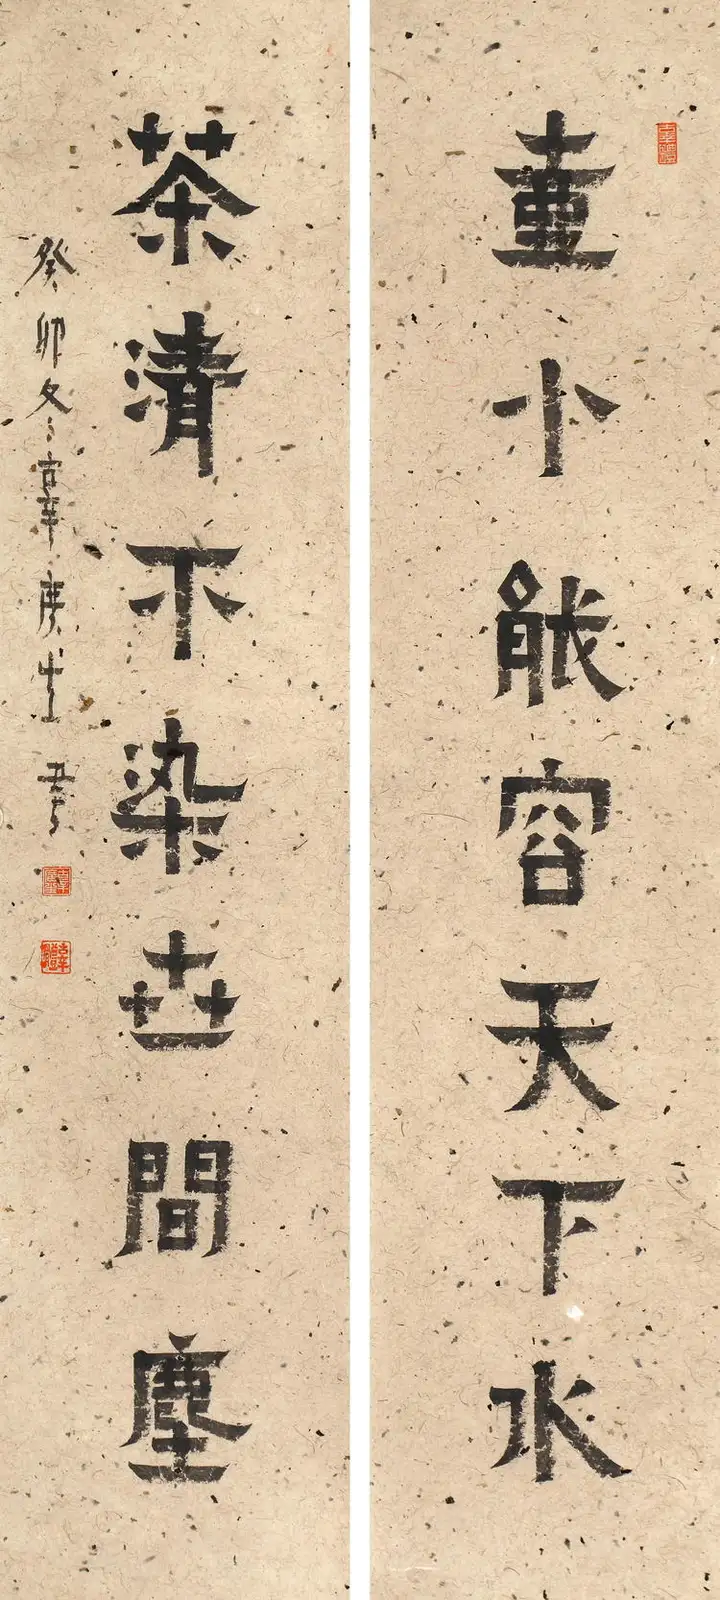 壺小能容天下水
茶清不染世間塵
癸卯冬